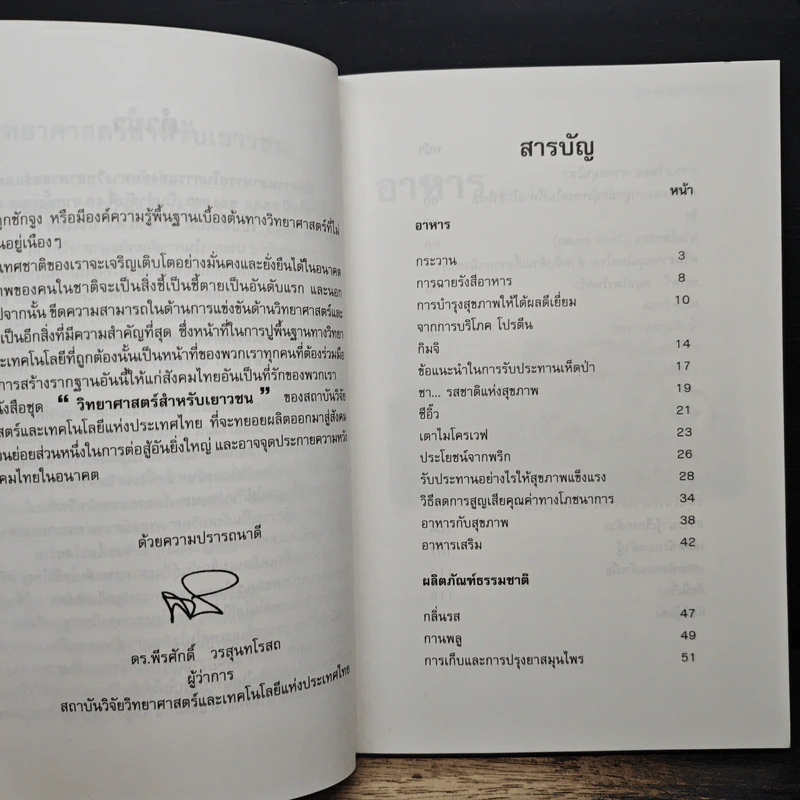 ถูกชักจูง หรือมีองค์ความรู้พื้นฐานเบื้องต้นทางวิทยาศาสตร์ที่ไม่
นอยู่เนืองๆ
เทศชาติของเราจะเจริญเติบโตอย่างมั่นคงและยั่งยืนได้ในอนาคต
าพของคนในชาติจะเป็นสิ่งชี้เป็นชี้ตายเป็นอันดับแรก และนอก
ปจากนั้น ขีดความสามารถในด้านการแข่งขันด้านวิทยาศาสตร์และ
เป็นอีกสิ่งที่มีความสำคัญที่สุด ซึ่งหน้าที่ในการปูพื้นฐานทางวิทยา
ะเทคโนโลยีที่ถูกต้องนั้นเป็นหน้าที่ของพวกเราทุกคนที่ต้องร่วมมือ
การสร้างรากฐานอันนี้ให้แก่สังคมไทยอันเป็นที่รักของพวกเรา
ังสือชุด “ วิทยาศาสตร์สำหรับเยาวชน ” ของสถาบันวิจัย
สตร์และเทคโนโลยีแห่งประเทศไทย ที่จะทยอยผลิตออกมาสู่สังคม
วนย่อยส่วนหนึ่งในการต่อสู้อันยิ่งใหญ่ และอาจจุดประกายความหวัง
ังคมไทยในอนาคต
ด้วยความปรารถนาดี
ดร.พีรศักดิ์ วรสุนทโรสถ
ผู้ว่าการ
สถาบันวิจัยวิทยาศาสตร์และเทคโนโลยีแห่งประเทศไทย
สารบัญ
หน้า
อาหาร
กระวาน 3
การฉายรังสีอาหาร 8
การบำรุงสุขภาพให้ได้ผลดีเยี่ยม 10
จากการบริโภค โปรตีน
กิมจิ 14
ข้อแนะนำในการรับประทานเห็ดป่า 17
ชา... รสชาติแห่งสุขภาพ 19
ซีอิ๊ว 21
เตาไมโครเวฟ 23
ประโยชน์จากพริก 26
รับประทานอย่างไรให้สุขภาพแข็งแรง 28
วิธีลดการสูญเสียคุณค่าทางโภชนาการ 34
อาหารกับสุขภาพ 38
อาหารเสริม 42
ผลิตภัณฑ์ธรรมชาติ
กลิ่นรส 47
กานพลู 49
การเก็บและการปรุงยาสมุนไพร 51